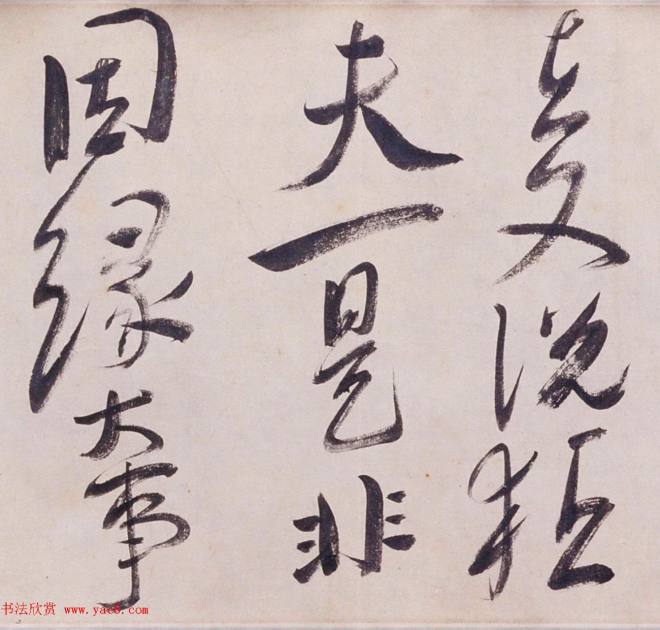 説
夫一是非
因緣大事
书法欣赏 www.yac8.com